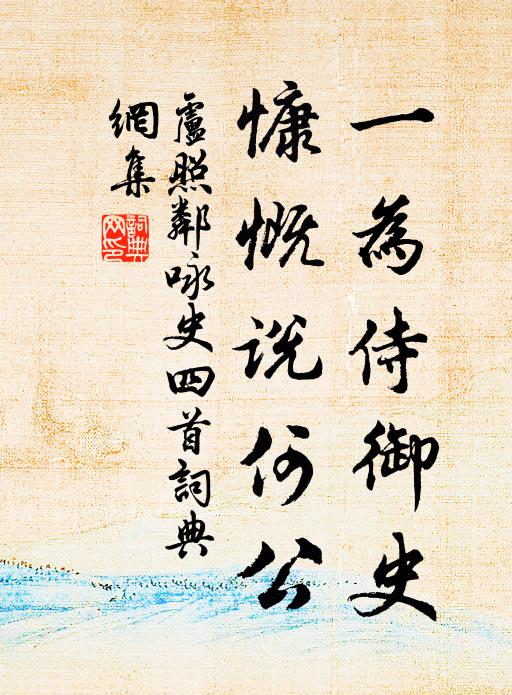 一為侍御史
慷慨說何公
盧照鄰咏史四首詞典
網集
詞典
网印